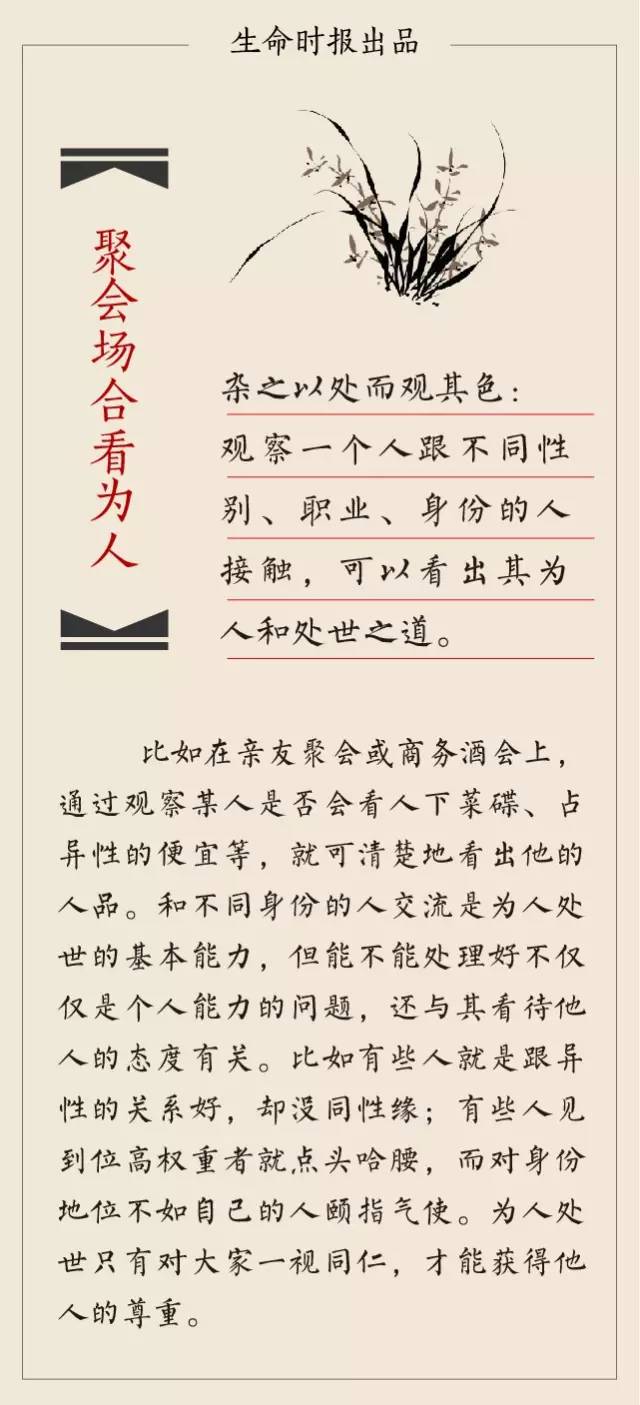 生命时报出品
聚会场合看为人
杂之以处而观其色：
观察一个人跟不同性
别、职业、身份的人
接触，可以看出其为
人和处世之道。
比如在亲友聚会或商务酒会上，
通过观察某人是否会看人下菜碟、占
异性的便宜等，就可清楚地看出他的
人品。和不同身份的人交流是为人处
世的基本能力，但能不能处理好不仅
仅是个人能力的问题，还与其看待他
人的态度有关。比如有些人就是跟异
性的关系好，却没同性缘；有些人见
到位高权重者就点头哈腰，而对身份
地位不如自己的人颐指气使。为人处
世只有对大家一视同仁，才能获得他
人的尊重。